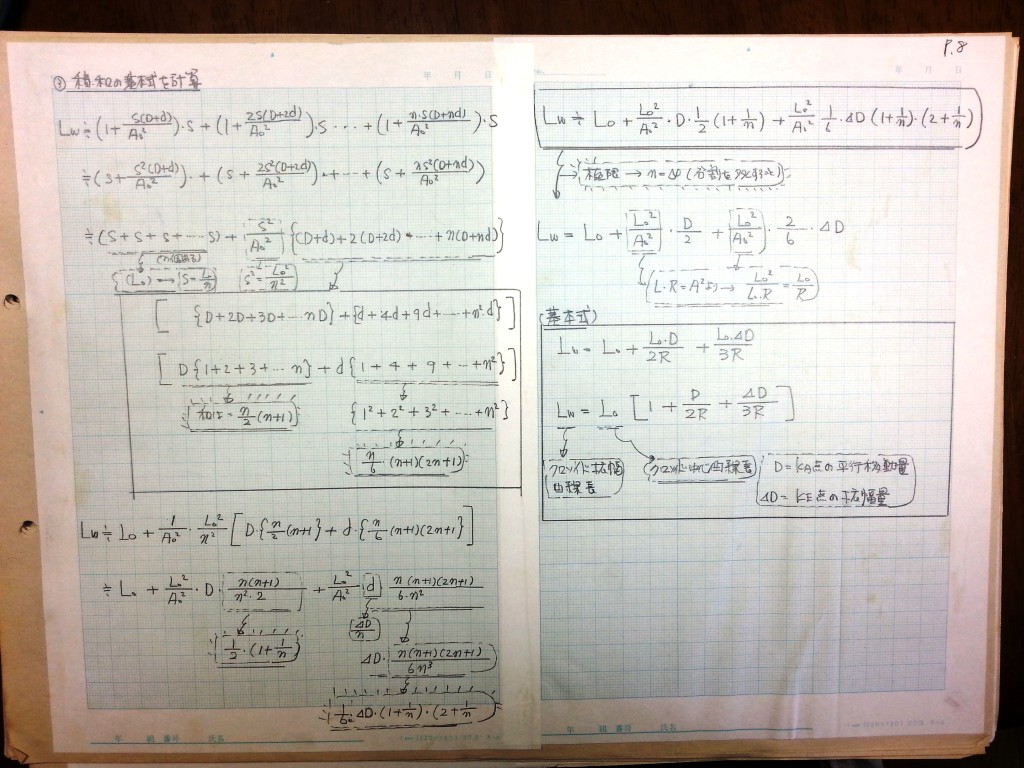 ③ 積・和の基本式を計算
Lw ≒ (1+ S(D+d)/A₀²)・S + (1+ 2S(D+2d)/A₀²)・S ・・・ + (1+ n・S(D+nd)/A₀²)・S
≒ (S+ S²(D+d)/A₀²)・ + (S+ 2S²(D+2d)/A₀²)・+ ・・・ + (S+ nS²(D+nd)/A₀²)
≒ (S+S+S+・・・S) + S²/A₀² {(D+d)+2(D+2d)+・・・+n(D+nd)}
(L₀) → S=L₀/n
S²=L₀²/n²
[ {D+2D+3D+・・・nD}+{d+4d+9d+・・・+n²d} ]
[ D{1+2+3+・・・n} + d{1+4+9+・・・+n²} ]
和は=n/2(n+1)
{1²+2²+3²+・・・+n²}
n/6・(n+1)(2n+1)
Lw ≒ L₀ + 1/A₀²・L₀²/n² [ D{n/2(n+1)} + d・{n/6(n+1)(2n+1)} ]
≒ L₀ + L₀²/A₀²・D・n(n+1)/n²・2 + L₀²/A₀²・d・n(n+1)(2n+1)/6・n²
1/2・(1+1/n)
ΔD/n
ΔD・n(n+1)(2n+1)/6n³
1/6・ΔD・(1+1/n)・(2+1/n)
年 組 番号 氏名
P.8
年 月 日
年 月 日
Lw ≒ L₀ + L₀²/A₀²・D・1/2(1+1/n) + L₀²/A₀²・1/6・ΔD(1+1/n)・(2+1/n)
Lw = L₀ + L₀²/A₀²・D/2 + L₀²/A₀²・2/6・ΔD
L・R=A²より → L₀²/L・R = L₀/R
(基本式)
Lw = L₀ + L₀・D/2R + L₀・ΔD/3R
Lw = L₀ [ 1 + D/2R + ΔD/3R ]
クロソイド拡幅
曲線長
クロソイド中心曲線長
D=KA点の平行移動量
ΔD=KE点の拡幅量
年 組 番号 氏名